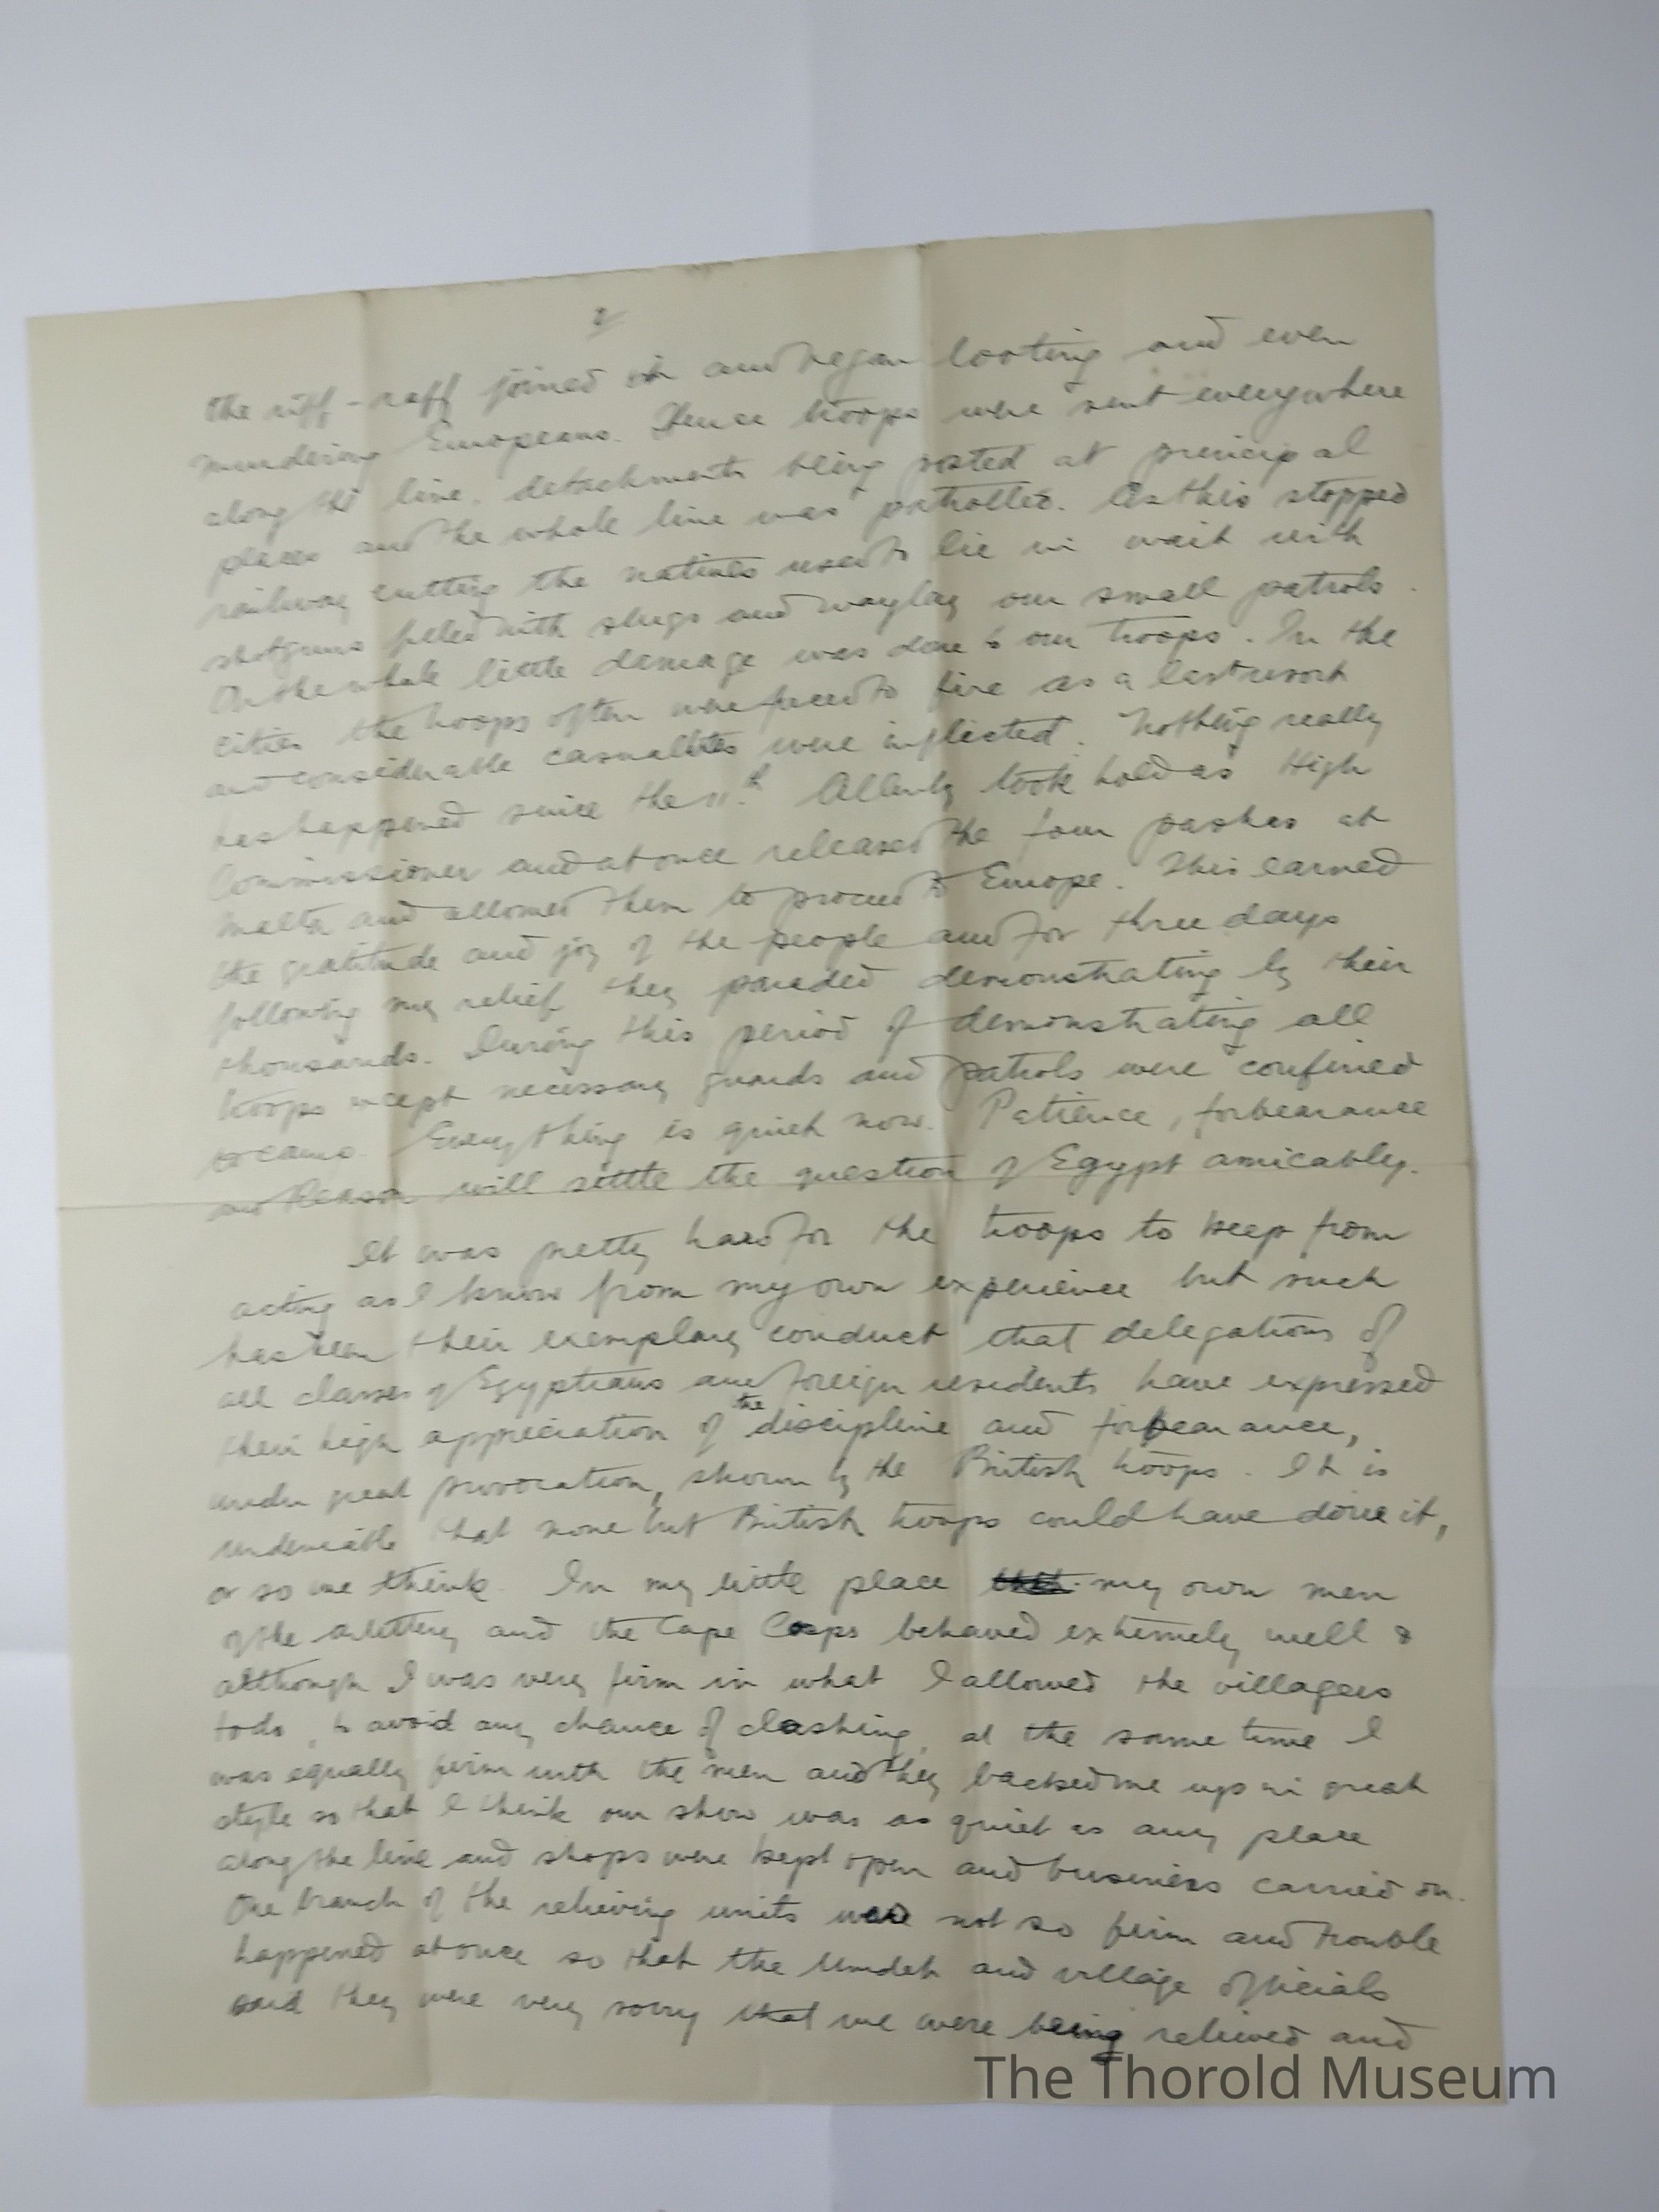 2
the riff-raff joined in and began looting and even
murdering Europeans. Hence troops were sent everywhere
along the line, detachments being posted at principal
places and the whole line was patrolled. As this stopped
railway cutting the natives used to lie in wait with
shotguns filled with slugs and waylay our small patrols.
On the whole little damage was done to our troops. In the
cities the troops often were forced to fire as a last resort
and considerable casualties were inflicted. Nothing really
has happened since the 11th. Allenby took hold as High
Commissioner and at once released the four pashas at
Malta and allowed them to proceed to Europe. This earned
the gratitude and joy of the people and for three days
following my relief they paraded demonstrating by their
thousands. During this period of demonstrating all
troops except necessary guards and patrols were confined
to camp. Everything is quiet now. Patience, forbearance
and Reason will settle the question of Egypt amicably.
It was pretty hard for the troops to keep from
acting as I know from my own experience but such
has been their exemplary conduct that delegations of
all classes of Egyptians and foreign residents have expressed
their high appreciation of the discipline and forbearance,
under great provocation, shown by the British troops. It is
undeniable that none but British troops could have done it,
or so we think. In my little place my own men
of the artillery and the Cape Corps behaved extremely well &
although I was very firm in what I allowed the villagers
to do, to avoid any chance of clashing, at the same time I
was equally firm with the men and they backed me up in great
style so that I think our show was as quiet as any place
along the line and shops were kept open and business carried on.
One branch of the relieving units was not so firm and trouble
happened at once so that the Umdeh and village officials
said they were very sorry that we were being relieved and
The Thorold Museum